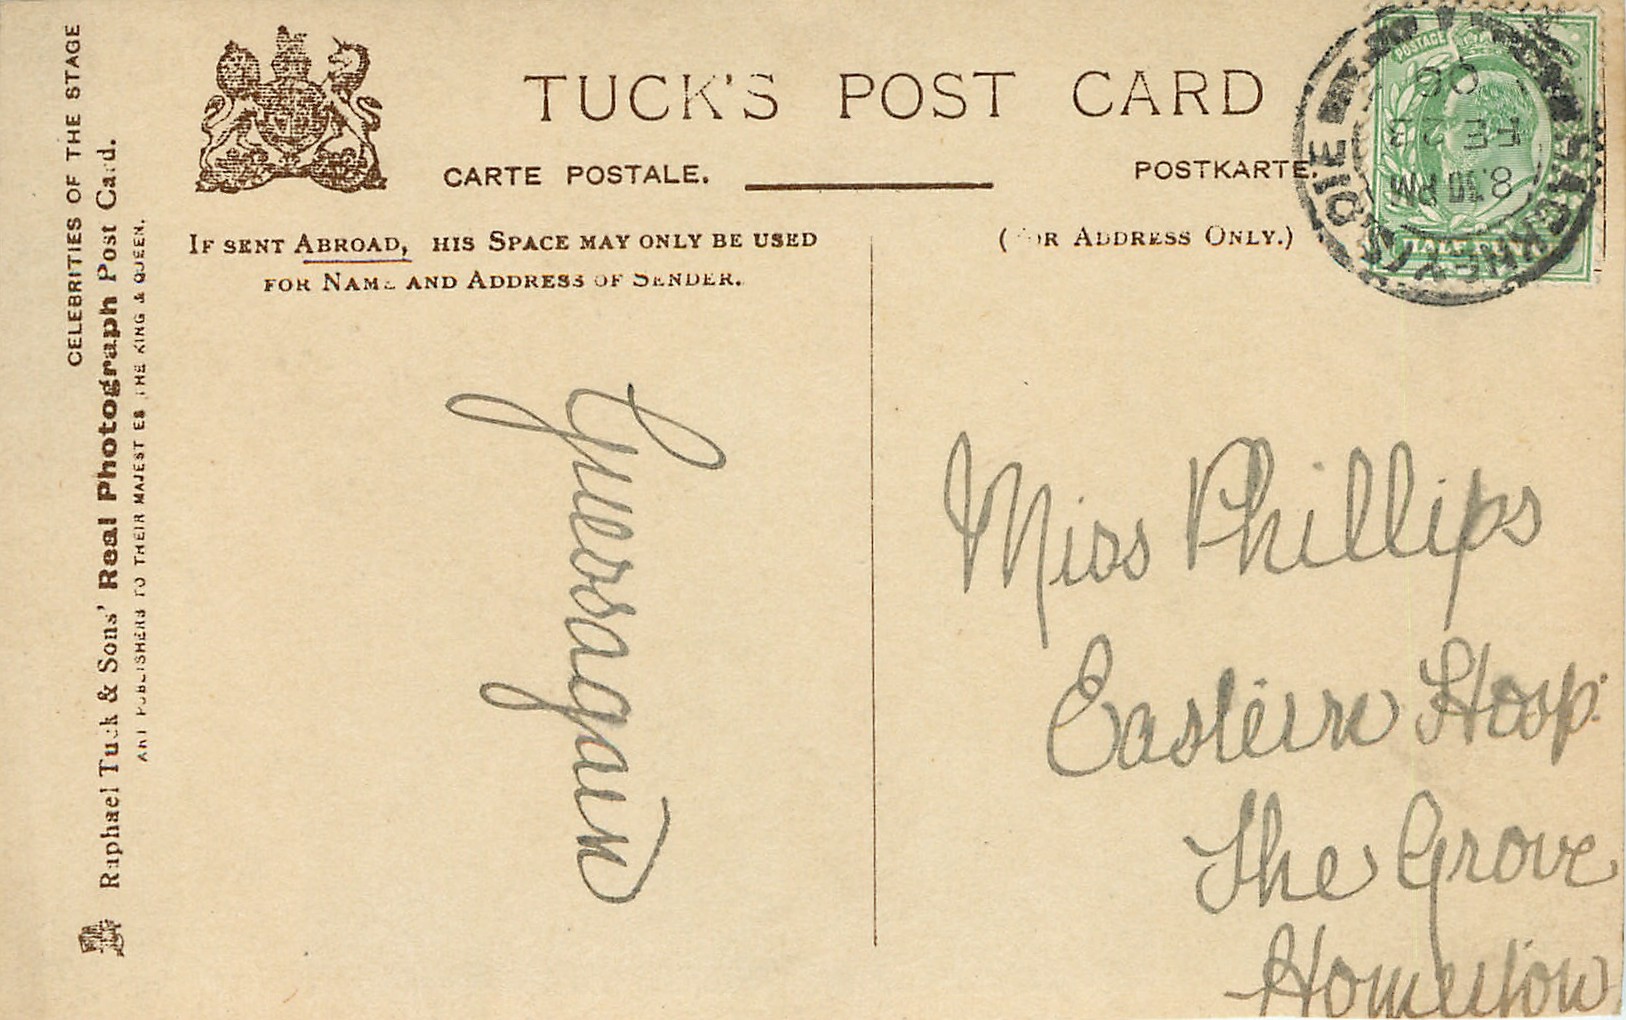 CELEBRITIES OF THE STAGE
Raphael Tuck & Sons' Real Photograph Post Card.
ART PUBLISHERS TO THEIR MAJESTIES THE KING & QUEEN.
TUCK'S POST CARD
CARTE POSTALE.
POSTKARTE.
IF SENT ABROAD, HIS SPACE MAY ONLY BE USED
FOR NAME AND ADDRESS OF SENDER.
(FOR ADDRESS ONLY.)
POSTAGE
HALF PENNY
HACKNEY
8.10 PM
FE 23
06
Guessagain
Miss Phillips
Eastern Hosp.
The Grove
Homerton